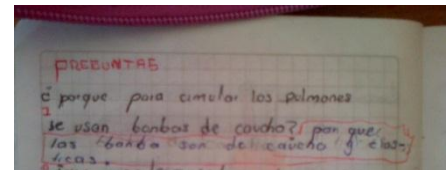 PREGUNTAS
¿ porque para cimular los pulmones
se usan bonbas de caucho? por que
las bonba son del caucho y elas-
ticas.